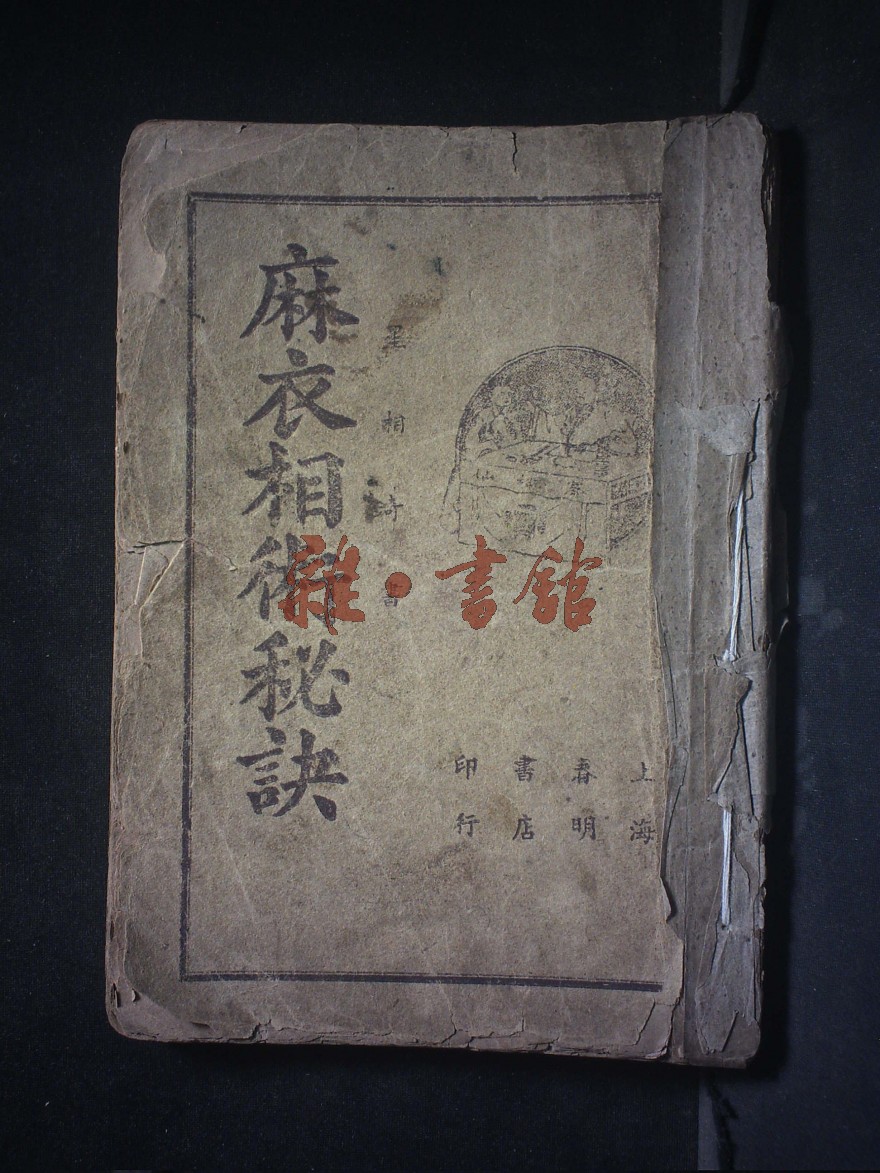 上海
春明
書店
印行
星相奇書
麻衣相術秘訣
雜·書館